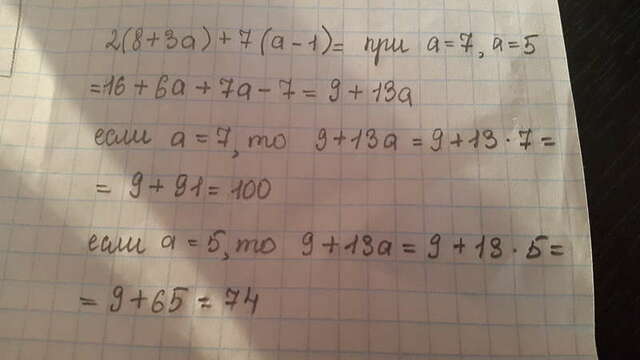 2(8+3a)+7(a-1)= при a=7, a=5
=16+6a+7a-7=9+13a
если a=7, то 9+13a=9+13·7=
= 9+91=100
если a=5, то 9+13a=9+13·5=
=9+65=74